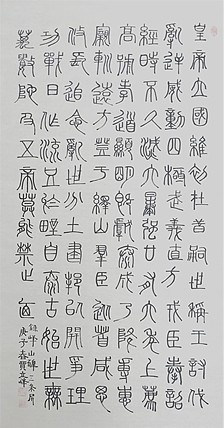 皇帝立國維初在昔嗣世稱王討伐
亂逆威動四極武義直方戎臣奉詔
經時不久滅六暴強廿有六年上薦
高號孝道顯明既獻泰成乃降尃惠
親巡遠方登于繹山群臣從者咸思
攸長追念亂世分土建邦以開爭理
功戰日作流血於野自泰古始世無
萬數陀及五帝莫能禁止廼
嶧山碑
庚子春賀